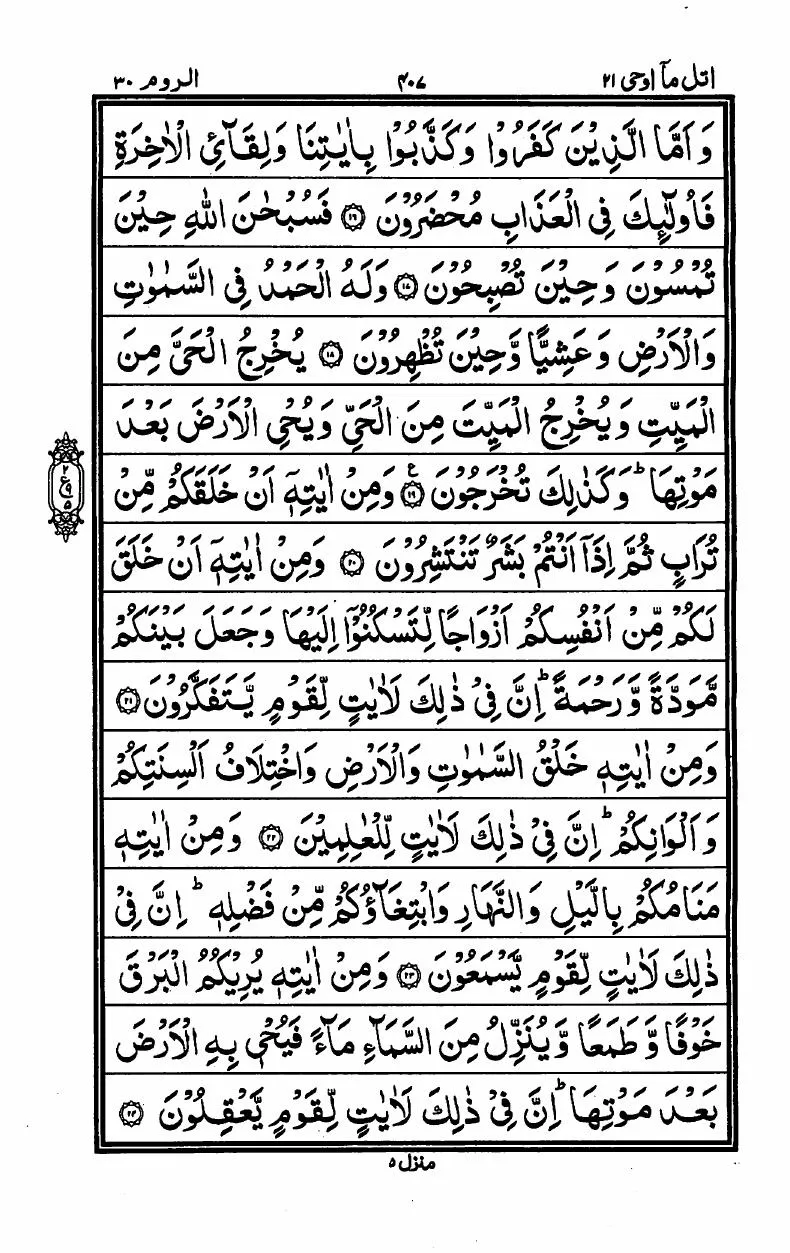 اتل مآ اوحی ۲۱
۴۰۷
الروم ۳۰
وَ اَمَّا الَّذِیْنَ كَفَرُوْا وَ كَذَّبُوْا بِاٰیٰتِنَا وَ لِقَآئِ الْاٰخِرَةِ
فَاُولٰٓىِٕكَ فِی الْعَذَابِ مُحْضَرُوْنَ ۝۱۶ فَسُبْحٰنَ اللّٰهِ حِیْنَ
تُمْسُوْنَ وَ حِیْنَ تُصْبِحُوْنَ ۝۱۷ وَ لَهُ الْحَمْدُ فِی السَّمٰوٰتِ
وَ الْاَرْضِ وَ عَشِیًّا وَّ حِیْنَ تُظْهِرُوْنَ ۝۱۸ یُخْرِجُ الْحَیَّ مِنَ
الْمَیِّتِ وَ یُخْرِجُ الْمَیِّتَ مِنَ الْحَیِّ وَ یُحْیِ الْاَرْضَ بَعْدَ
مَوْتِهَا ؕ وَ كَذٰلِكَ تُخْرَجُوْنَ ۝۱۹ ع وَ مِنْ اٰیٰتِهٖۤ اَنْ خَلَقَكُمْ مِّنْ
تُرَابٍ ثُمَّ اِذَاۤ اَنْتُمْ بَشَرٌ تَنْتَشِرُوْنَ ۝۲۰ وَ مِنْ اٰیٰتِهٖۤ اَنْ خَلَقَ
لَكُمْ مِّنْ اَنْفُسِكُمْ اَزْوَاجًا لِّتَسْكُنُوْۤا اِلَیْهَا وَ جَعَلَ بَیْنَكُمْ
مَّوَدَّةً وَّ رَحْمَةً ؕ اِنَّ فِیْ ذٰلِكَ لَاٰیٰتٍ لِّقَوْمٍ یَّتَفَكَّرُوْنَ ۝۲۱
وَ مِنْ اٰیٰتِهٖ خَلْقُ السَّمٰوٰتِ وَ الْاَرْضِ وَ اخْتِلَافُ اَلْسِنَتِكُمْ
وَ اَلْوَانِكُمْ ؕ اِنَّ فِیْ ذٰلِكَ لَاٰیٰتٍ لِّلْعٰلِمِیْنَ ۝۲۲ وَ مِنْ اٰیٰتِهٖ
مَنَامُكُمْ بِالَّیْلِ وَ النَّهَارِ وَ ابْتِغَآؤُكُمْ مِّنْ فَضْلِهٖ ؕ اِنَّ فِیْ
ذٰلِكَ لَاٰیٰتٍ لِّقَوْمٍ یَّسْمَعُوْنَ ۝۲۳ وَ مِنْ اٰیٰتِهٖ یُرِیْكُمُ الْبَرْقَ
خَوْفًا وَّ طَمَعًا وَّ یُنَزِّلُ مِنَ السَّمَآءِ مَآءً فَیُحْیٖ بِهِ الْاَرْضَ
بَعْدَ مَوْتِهَا ؕ اِنَّ فِیْ ذٰلِكَ لَاٰیٰتٍ لِّقَوْمٍ یَّعْقِلُوْنَ ۝۲۴
۲
ع ۹
۵
منزل ۵